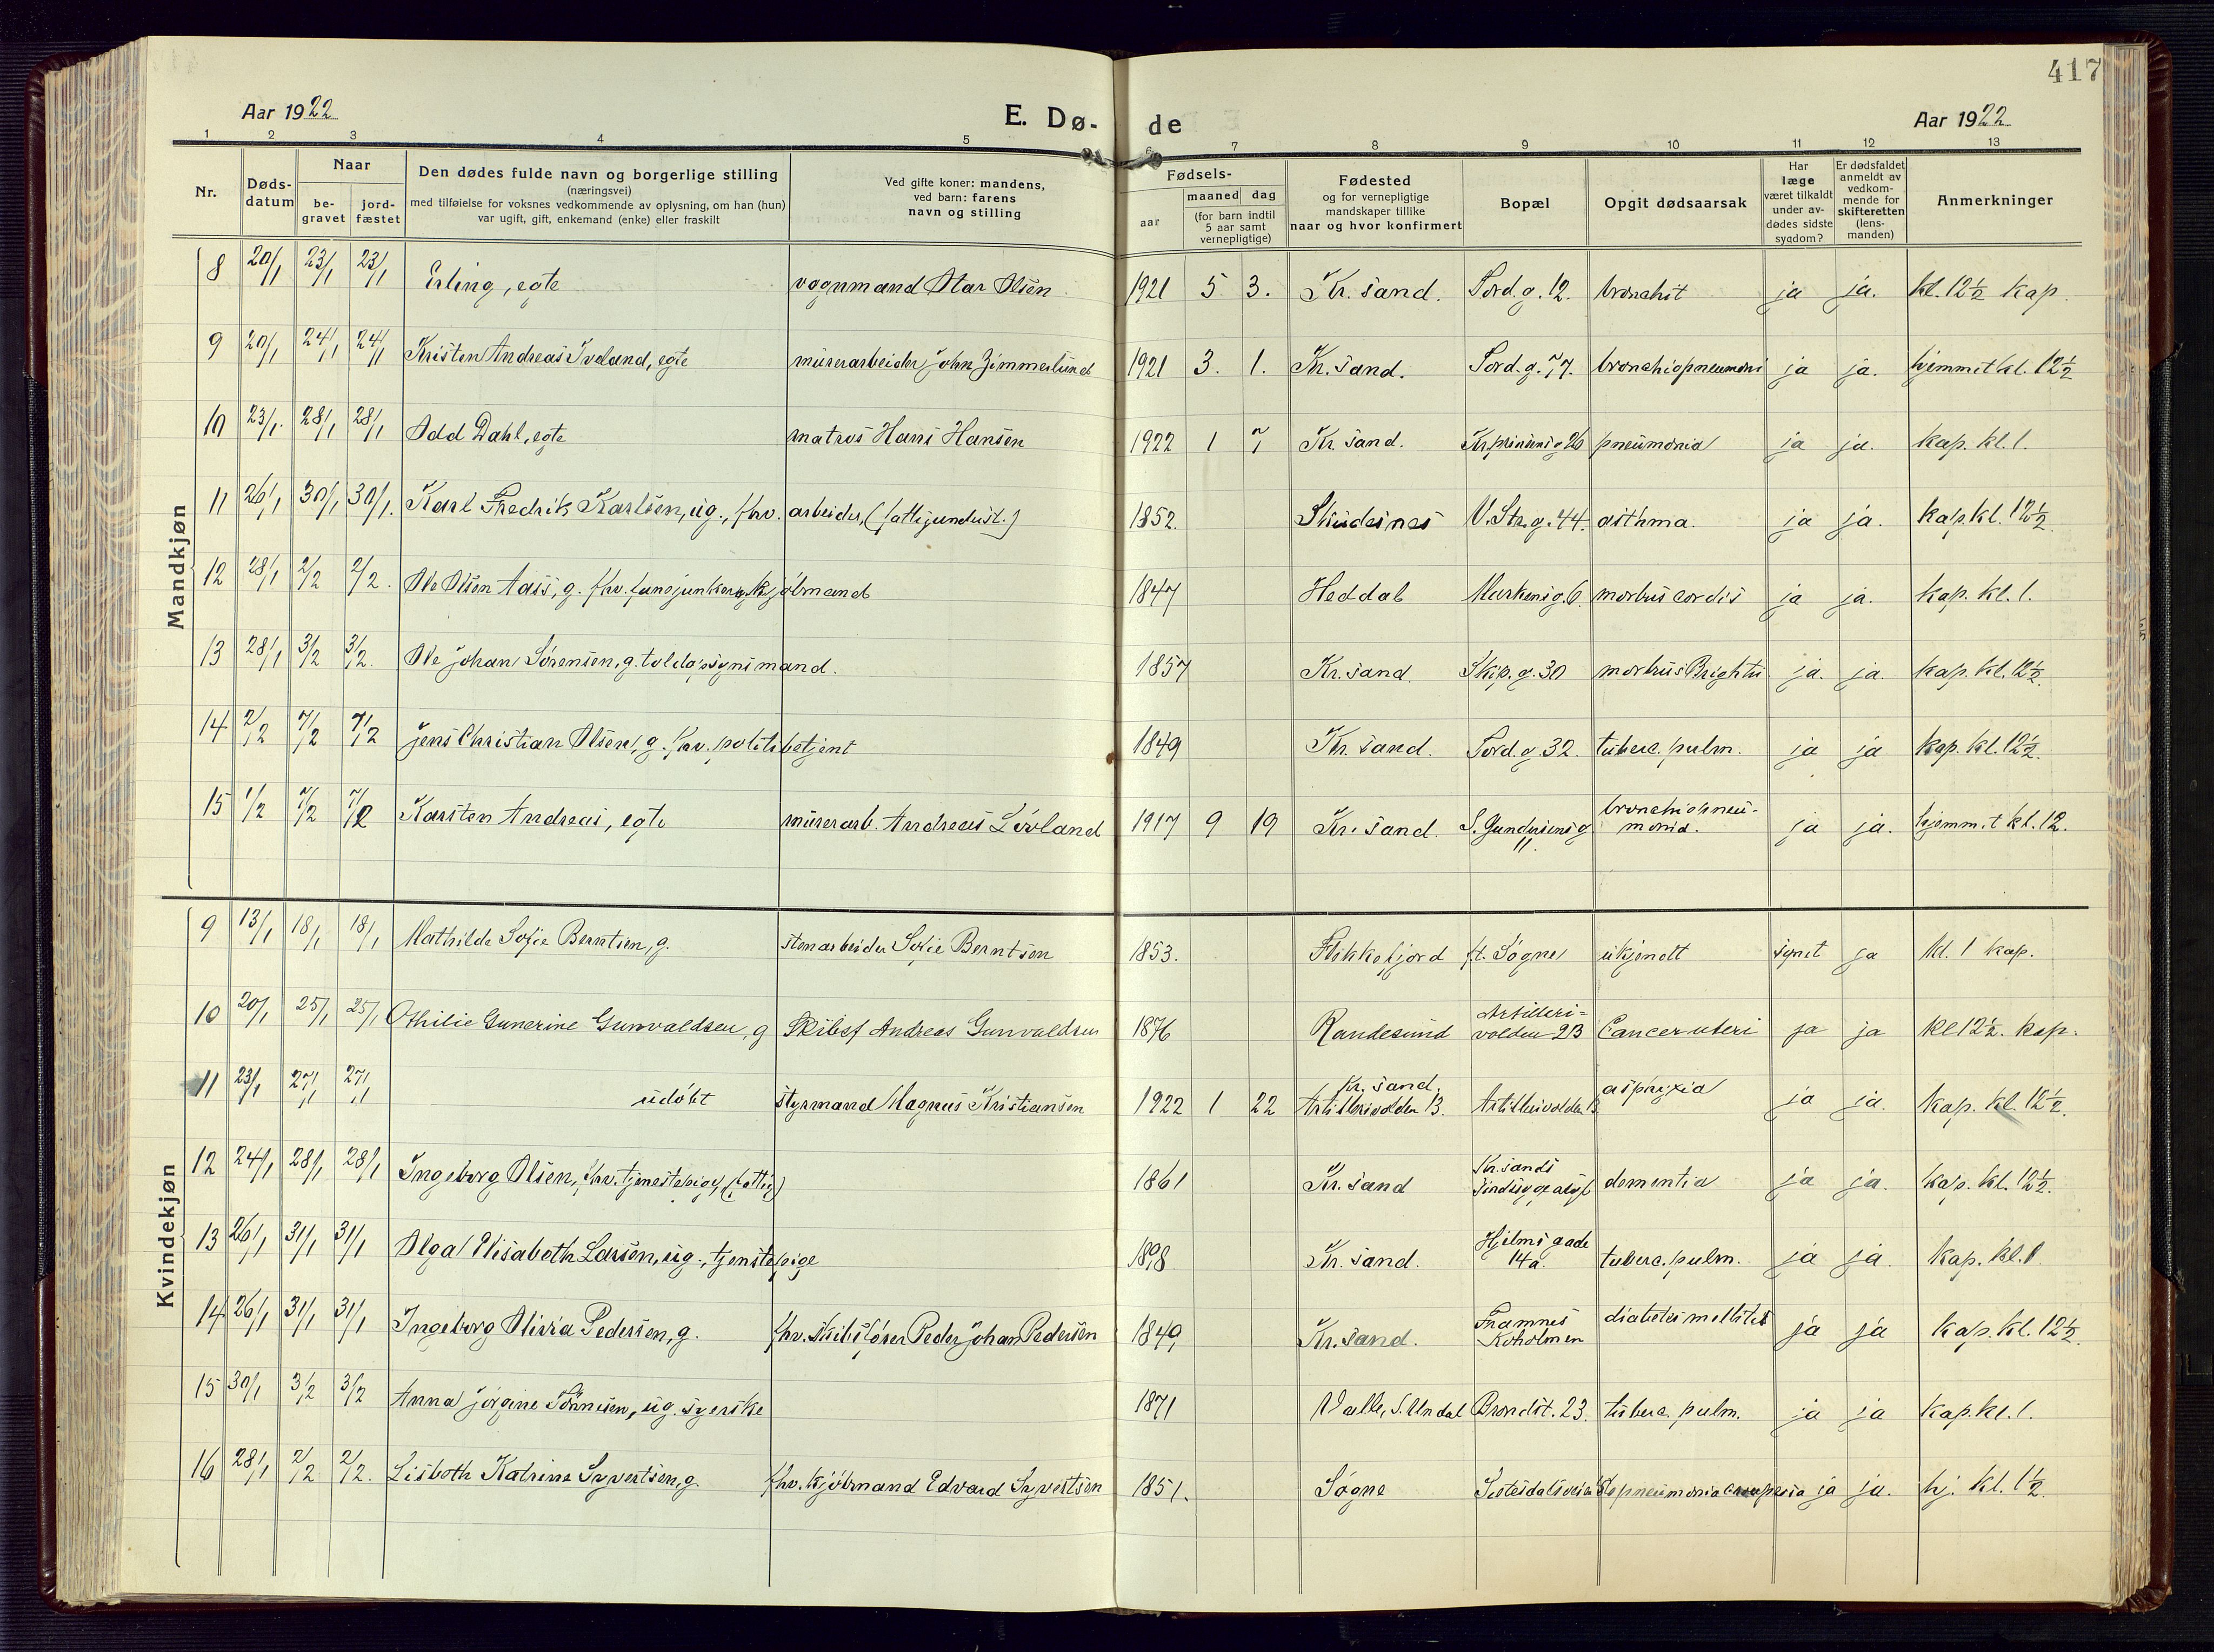 417
Aar 1922 E. Dø- de Aar 1922
1 2 3 4 5 6 7 8 9 10 11 12 13
Nr. Døds-datum Naar be-gravet jord-fæstet
Den dødes fulde navn og borgerlige stilling
(næringsvei)
med tilføielse for voksnes vedkommende av oplysning, om han (hun)
var ugift, gift, enkemand (enke) eller fraskilt
Ved gifte koner: mandens,
ved barn: farens
navn og stilling
Fødsels-
aar maaned dag
(for barn indtil
5 aar samt
vernepligtige)
Fødested
og for vernepligtige
mandskaper tillike
naar og hvor konfirmert
Bopæl
Opgit dødsaarsak
Har
læge
været tilkaldt
under av-
dødes sidste
sygdom?
Er dødsfaldet
anmeldt av
vedkom-
mende for
skifteretten
(lens-
manden)
Anmerkninger
Mandkjøn
8 20/1 23/1 23/1 Erling, egte vognmand Olar Olsen 1921 5 3. Kr. sand. Tord.g. 12. bronchit ja ja. kl. 12½ kap.
9 20/1 24/1 24/1 Kristen Andreas Iveland, egte murerarbeider John Zimmerlund 1921 3. 1. Kr. sand. Tord.g. 77. bronchiopneumoni ja ja. hjemmit kl. 12½
10 23/1. 28/1 28/1 Odd Dahl, egte matros Hans Hansen 1922 1 7 Kr. sand. Kr.prinsensg 26 pneumonia ja ja. kap. kl. 1.
11 26/1 30/1 30/1. Karl Fredrik Karlsen, ug., fhv. arbeider, (fattigundust.) 1852. Skudesnes V. Str.g. 44. asthma. ja ja. kap. kl. 12½
12 28/1 2/2 2/2. Ole Olsen Aass, g. fhv. kjøbmand 1847 Heddal Markensg. 6. morbus cordis ja ja. kap. kl. 1.
13 28/1 3/2 3/2. Ole Johan Sørensen, g. toldopsynsmand. 1857 Kr. sand. Skip.g. 30 morbus Brightii ja. ja. kap. kl. 12½.
14 2/2 7/2 7/2 Jens Christian Olsen, g. fhv. politibetjent 1849 Kr. sand. Tord.g. 32. tuberc. pulm. ja ja kap. kl. 12½.
15 1/2 7/2 7/2 Karsten Andreas, egte murerarb. Andreas Løvland 1917 9 19 Kr. sand. S. Gundersensg 11. bronchiopneu-monia. ja ja. hjemm.t kl. 12.
Kvindekjøn
9 13/1 18/1 18/1 Mathilde Sofie Berntsen, g. stenarbeider Sofie Berntsen 1853. Flekkefjord ft. Søgne ukjendt synet ja kl. 1 kap.
10 20/1 25/1 25/1 Othilie Gunerine Gunvaldsen, g Skibsf Andreas Gunvaldsen 1876 Randesund Artilleri=volden 23 Cancer uteri ja ja kl 12½. kap.
11 23/1 27/1 27/1 udøbt styrmand Magnus Kristiansen 1922 1 22 Kr. sand. Artillerivolden 13. Artillerivolden 13 asphyxia ja ja. kap. kl. 12½.
12 24/1 28/1 28/1 Ingeborg Olsen, fhv. tjenestepige, (fattig) 1861 Kr. sand Kr. sands sindssygeasyl dementia ja ja. kap. kl. 12½.
13 26/1 31/1 31/1 Olga Elisabeth Larsen, ug., tjenstepige 1898 Kr. sand. Hjelms gade 14a. tuberc. pulm. ja ja. kap. kl. 1
14 26/1 31/1 31/1 Ingeborg Olivia Pedersen, g. fhv. skibsfører Peder Johan Pedersen 1849 Kr. sand. Framnes Koholmen diabetes mellitus ja ja kap. kl. 12½.
15 30/1 3/2 3/2 Anna Jørgine Tønnesen, ug. syerske 1871 Valle, S. Undal Brondst. 23. tuberc. pulm. ja ja kap. kl. 1.
16 28/1 2/2 2/2. Lisbeth Katrine Syvertsen, g. fhv. kjøbmand Edvard Syvertsen 1851. Søgne Setesdalsveien pneumonia ja ja. hj. kl. 1½.